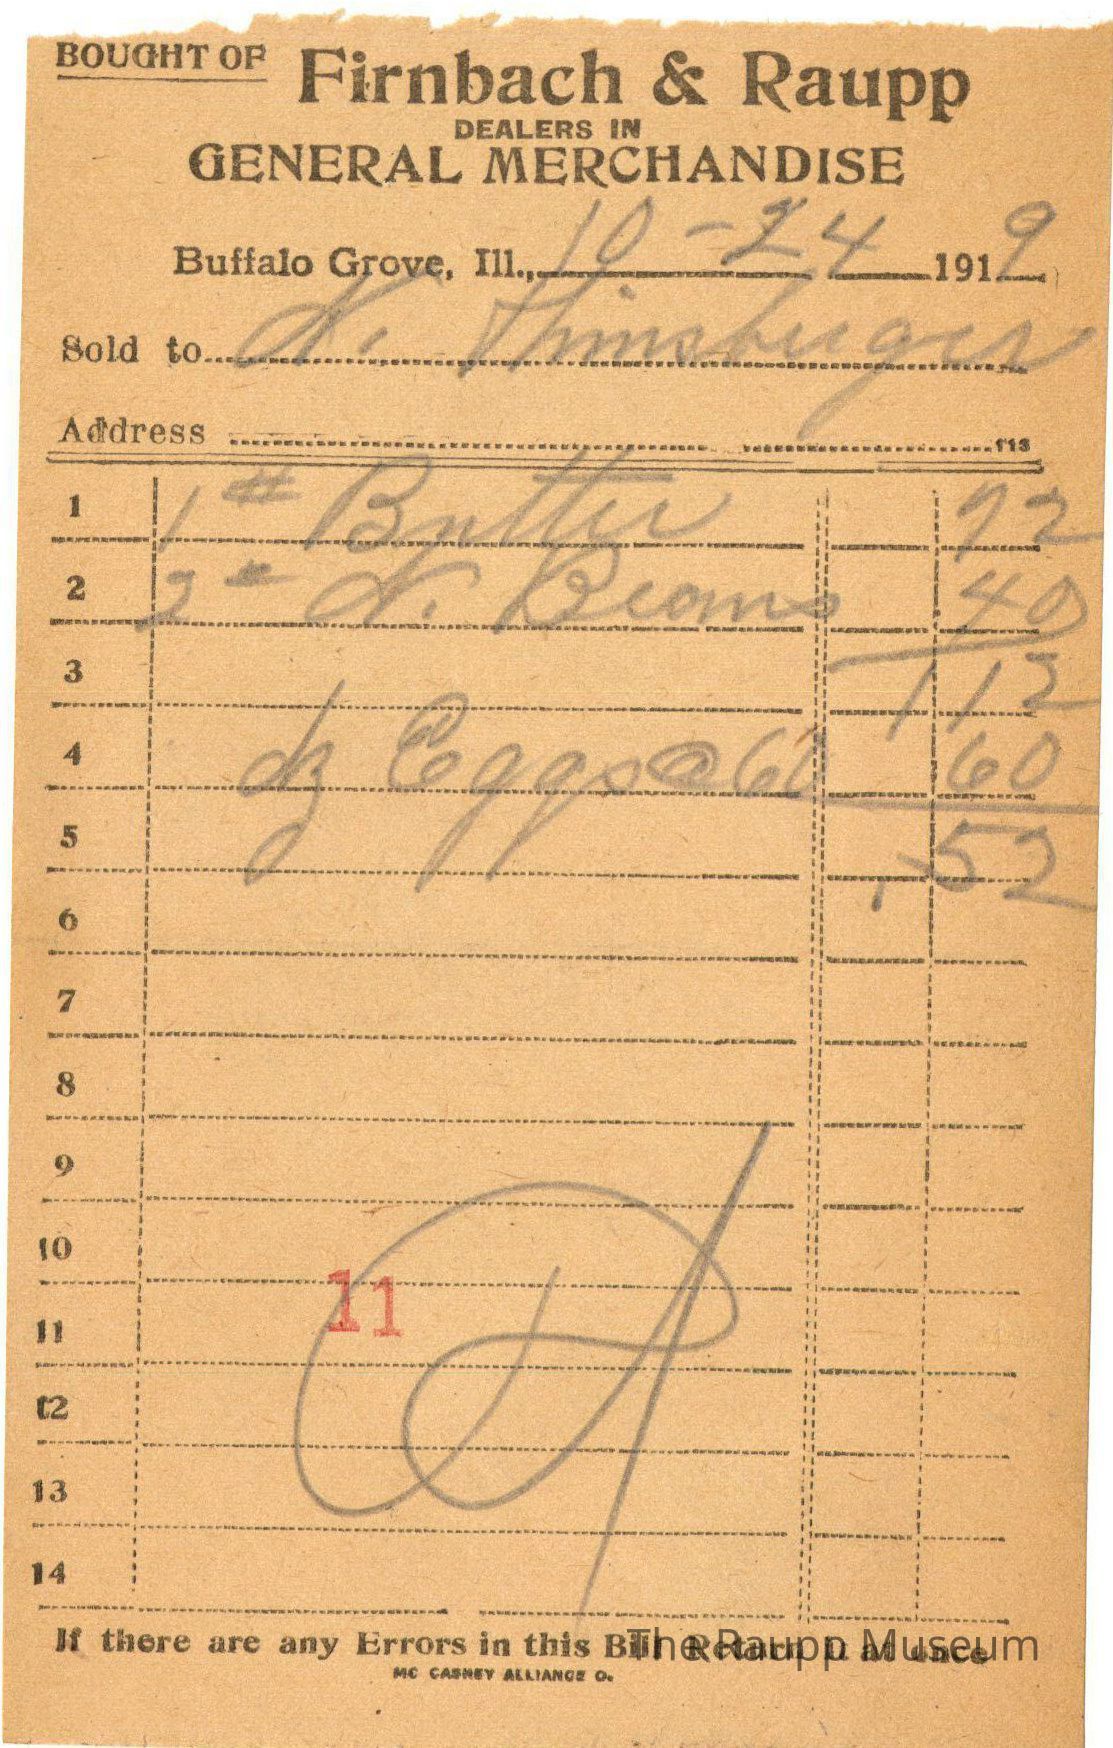 BOUGHT OF Firnbach & Raupp
DEALERS IN
GENERAL MERCHANDISE
Buffalo Grove, Ill., 10-24 1919
Sold to N.
Address 113
1 1 # Butter 72
2 2 # N. Beans 40
3 112
4 dz Eggs @ 60 60
5 52
6
7
8
9
10
11
11
12
13
14
If there are any Errors in this Bill Return it at once
The Raupp Museum
MC CASKEY ALLIANCE O.